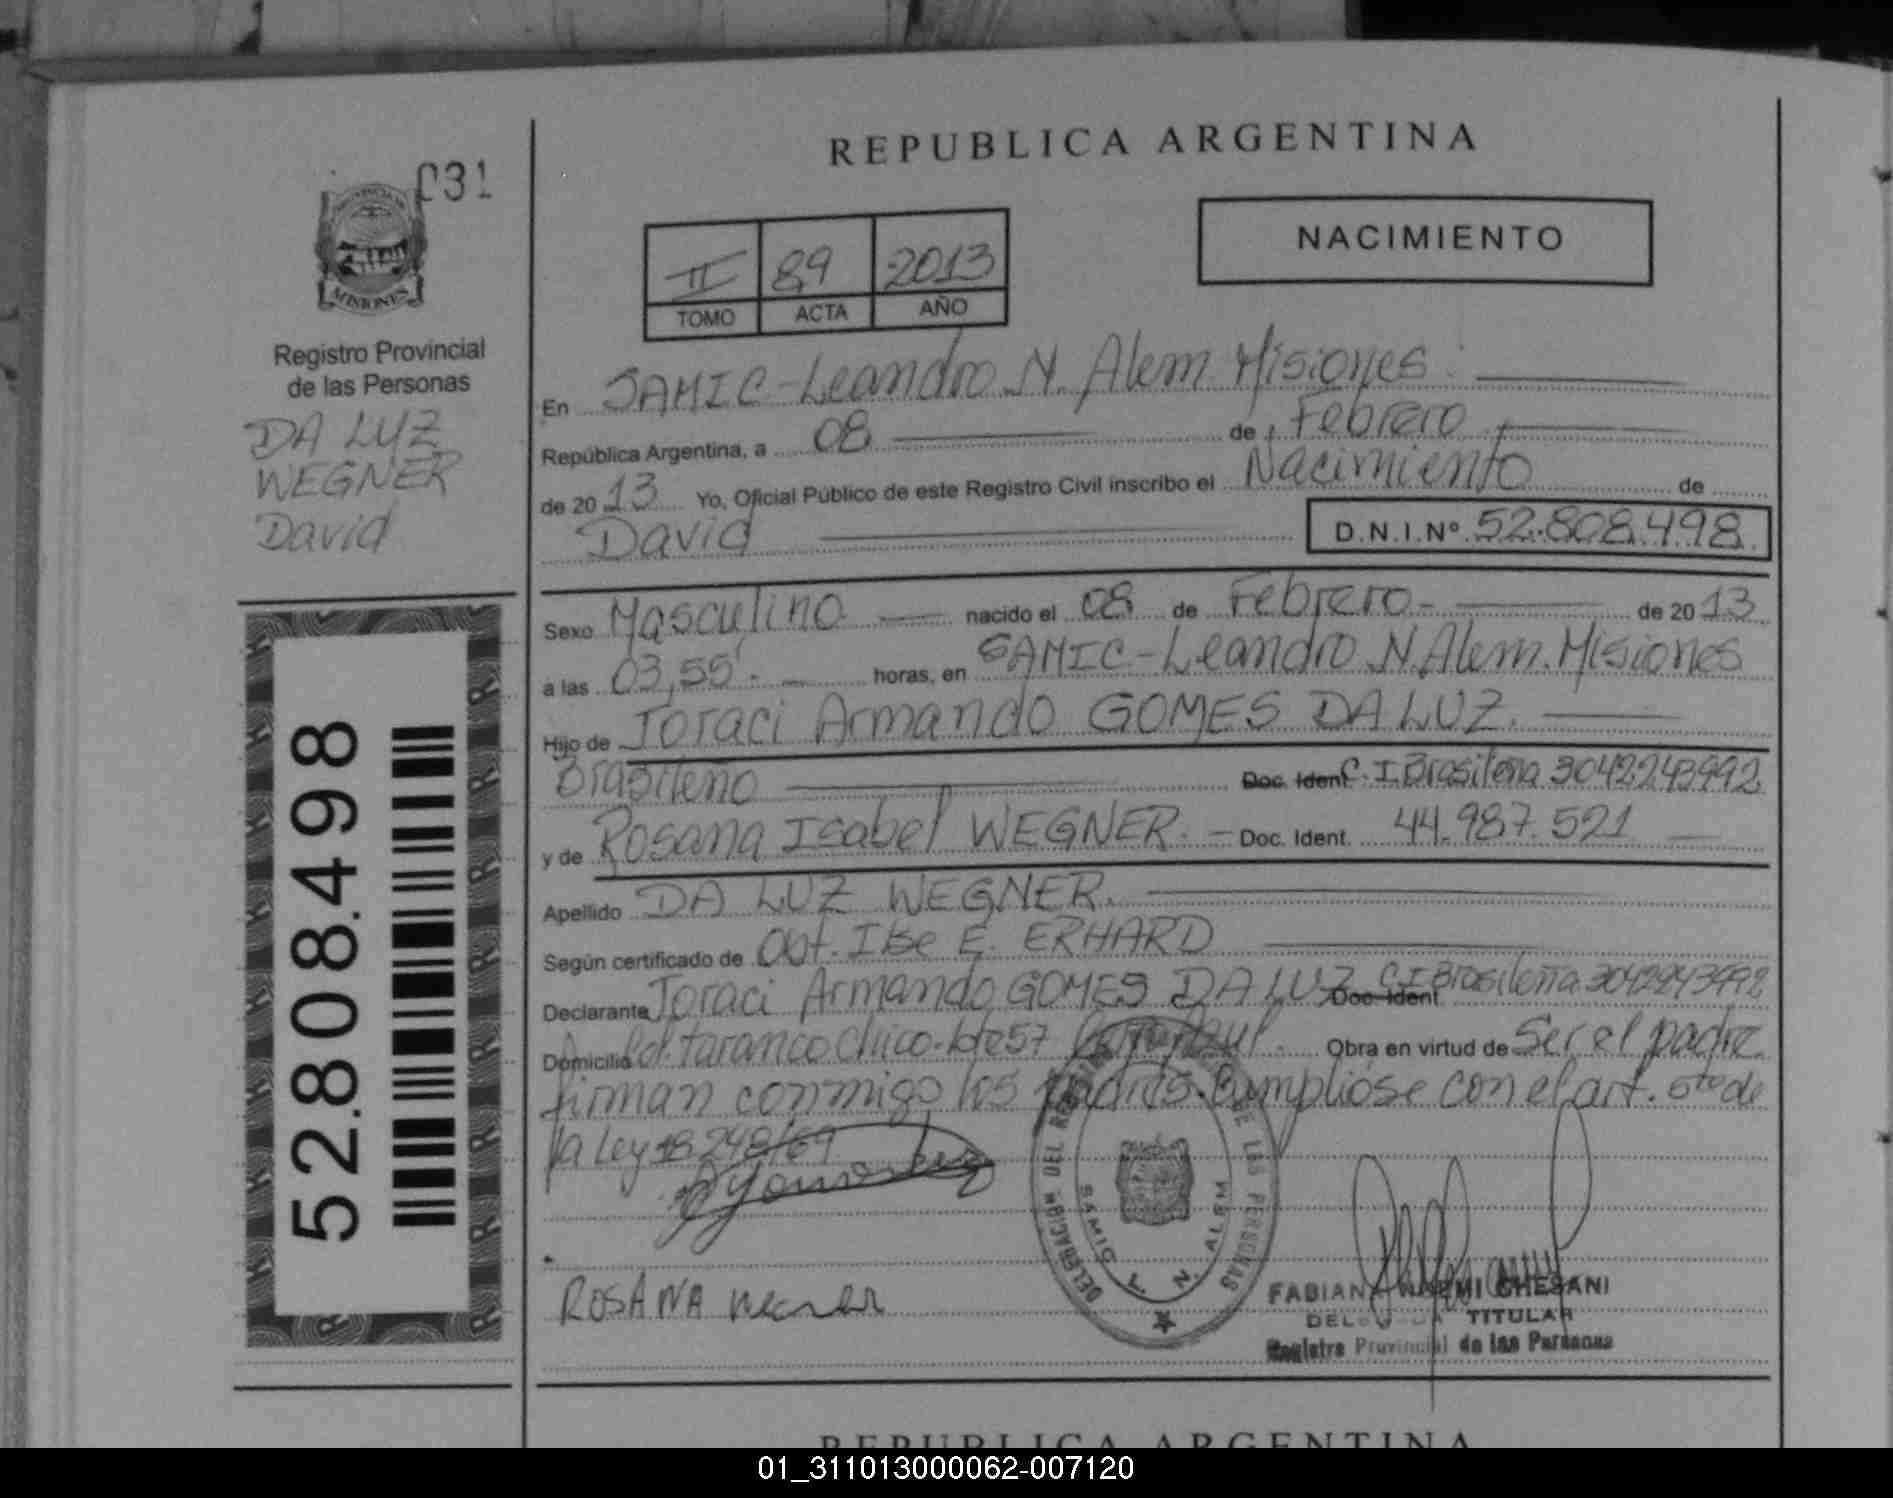 REPUBLICA ARGENTINA
031
NACIMIENTO
II 89 2013
TOMO ACTA AÑO
MISIONES
Registro Provincial
de las Personas
DA LUZ
WEGNER
David
En SAMIC-Leandro N. Alem Misiones.
República Argentina, a 08 de Febrero
de 20 13 Yo, Oficial Público de este Registro Civil inscribo el Nacimiento de
David D.N.I.Nº 52.808.498
Sexo Masculino nacido el 08 de Febrero.- de 20 13
a las 03,55'.- horas, en SAMIC-Leandro N. Alem. Misiones
Hijo de Joraci Armando GOMES DA LUZ.
Brasileño Doc. Ident. C.I.Brasileña 3042243992
y de Rosana Isabel WEGNER. Doc. Ident. 44.987.521
Apellido DA LUZ WEGNER.
Según certificado de Obt. Ilse E. ERHARD
Declarante Joraci Armando GOMES DA LUZ Doc. Ident. C.I Brasileña 3042243992
Domicilio Col. taranco chico. lote 57 Obra en virtud de Ser el padre
firman conmigo los padres. Cumpliose con el art. 5to de
la Ley 18.248/69
ROSANA
DELEGACION DEL DE LAS PERSONAS
SAMIC L. N. ALEM
FABIANA NOEMI CHESANI
DELEGADA TITULAR
Registro Provincial de las Personas
52.808.498
REPUBLICA ARGENTINA
01_311013000062-007120